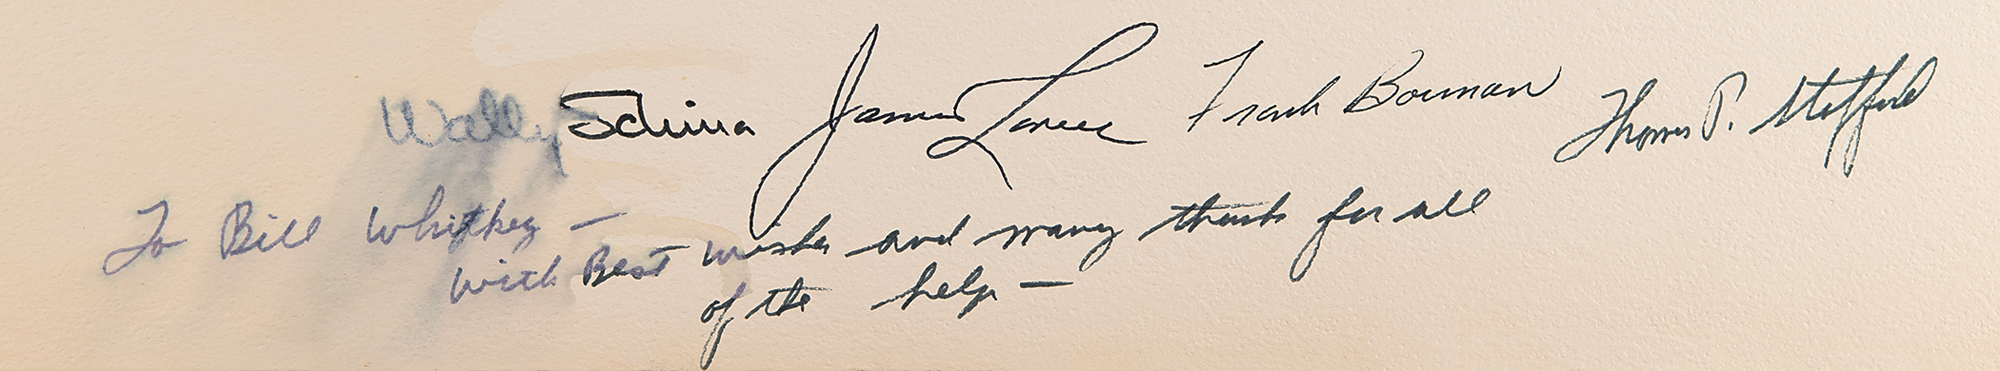 Wally Schirra James Lovell Frank Borman Thomas P. Stafford
To Bill Whitkey –
with Best wishes and many thanks for all
of the help –